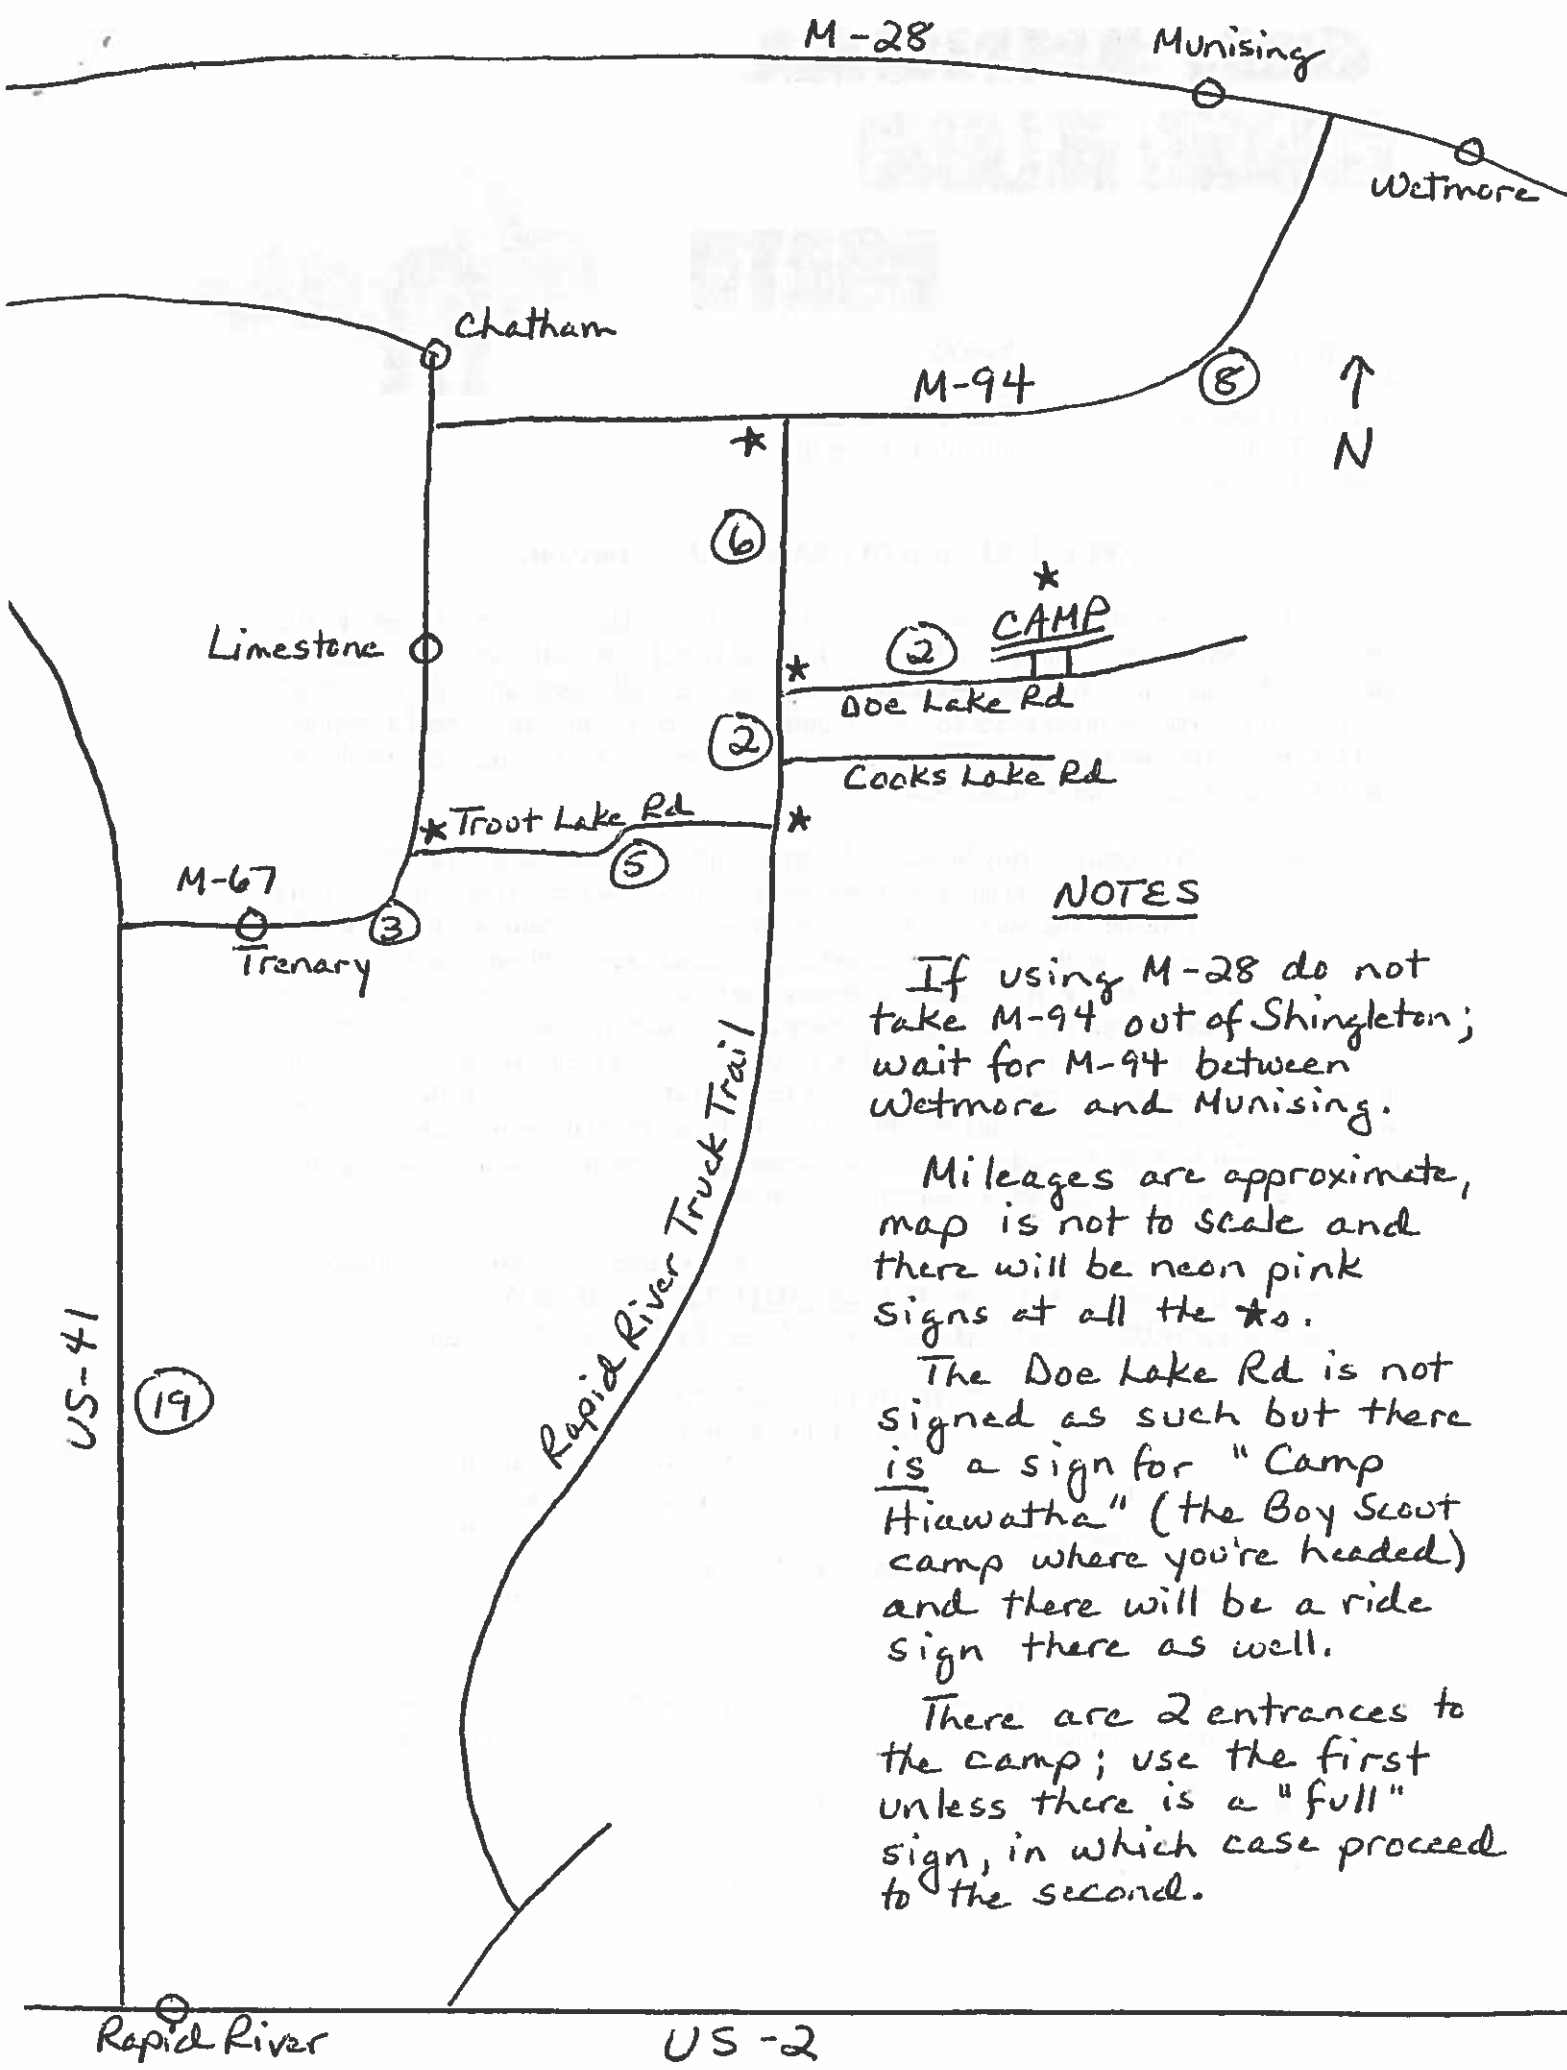 M-28
Munising
Wetmore
Chatham
M-94
8
↑
N
★
6
★
CAMP
Limestone
★
2
Doe Lake Rd
2
Cooks Lake Rd
★ Trout Lake Rd
★
5
M-67
3
Trenary
Rapid River Truck Trail
US-41
19
Rapid River
US-2
NOTES
If using M-28 do not
take M-94 out of Shingleton;
wait for M-94 between
Wetmore and Munising.
Mileages are approximate,
map is not to scale and
there will be neon pink
signs at all the ★s.
The Doe Lake Rd is not
signed as such but there
is a sign for "Camp
Hiawatha" (the Boy Scout
camp where you're headed)
and there will be a ride
sign there as well.
There are 2 entrances to
the camp; use the first
unless there is a "full"
sign, in which case proceed
to the second.